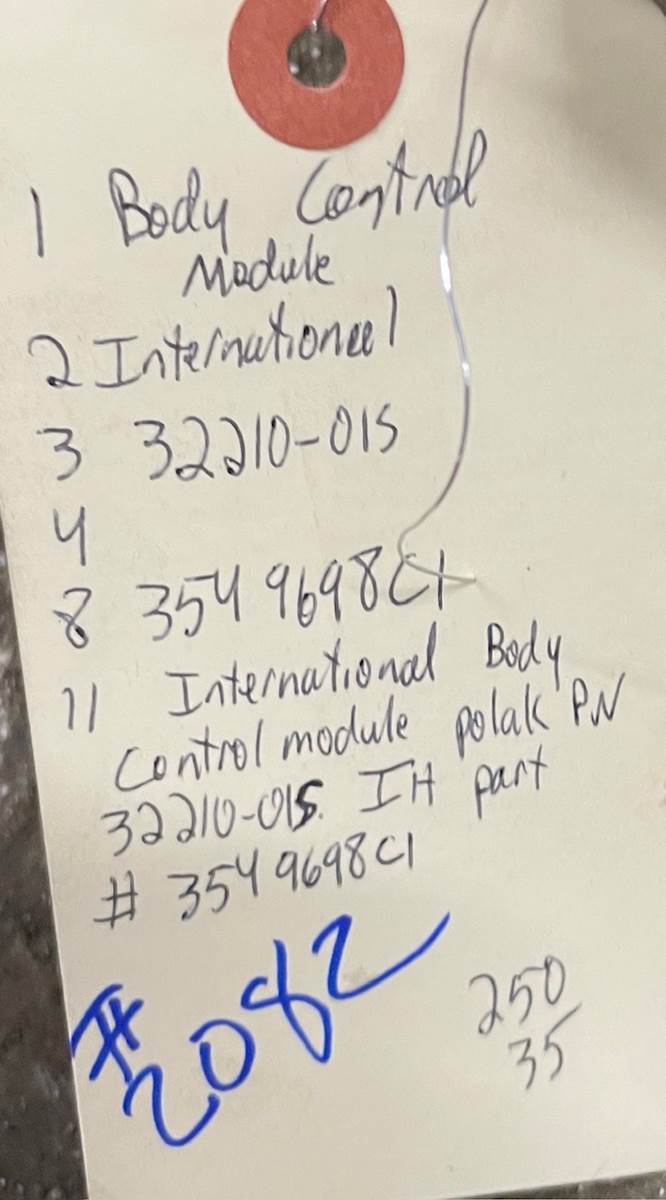 1 Body Control
Module
2 International
3 32210-015
4
8 354 9698C1
11 International Body
Control module polak PN
32210-015. IH part
# 354 9698C1
#2082
250
35